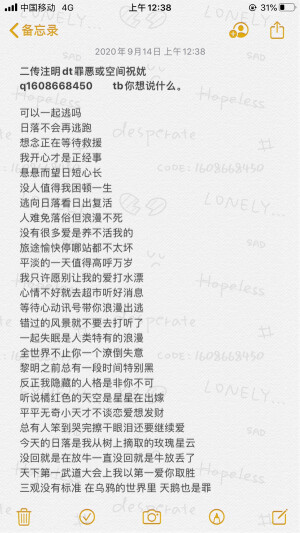 中国移动 4G 上午12:38 31%
备忘录
2020年9月14日 上午12:38
二传注明dt罪恶或空间祝妩
q1608668450 tb你想说什么。
可以一起逃吗
日落不会再逃跑
想念正在等待救援
我开心才是正经事
悬悬而望日短心长
没人值得我困顿一生
逃向日落看日出复活
人难免落俗但浪漫不死
没有很多爱是养不活我的
旅途愉快停哪站都不太坏
平淡的一天值得高呼万岁
我只许愿别让我的爱打水漂
心情不好就去超市听好消息
等待心动讯号带你浪漫出逃
错过的风景就不要去打听了
一起失眠是人类特有的浪漫
全世界不止你一个潦倒失意
黎明之前总有一段时间特别黑
反正我隐藏的人格是非你不可
听说橘红色的天空是星星在出嫁
平平无奇小天才不谈恋爱想发财
总有人笨到哭完擦干眼泪还要继续爱
今天的日落是我从树上摘取的玫瑰星云
没回就是在放牛一直没回就是牛放丢了
天下第一武道大会上我以第一爱你取胜
三观没有标准 在乌鸦的世界里 天鹅也是罪
LONELY...
desperate
CODE:1608668450
Hopeless
SAD
LONELY...
desperate
CODE:1608668450
Hopeless
SAD